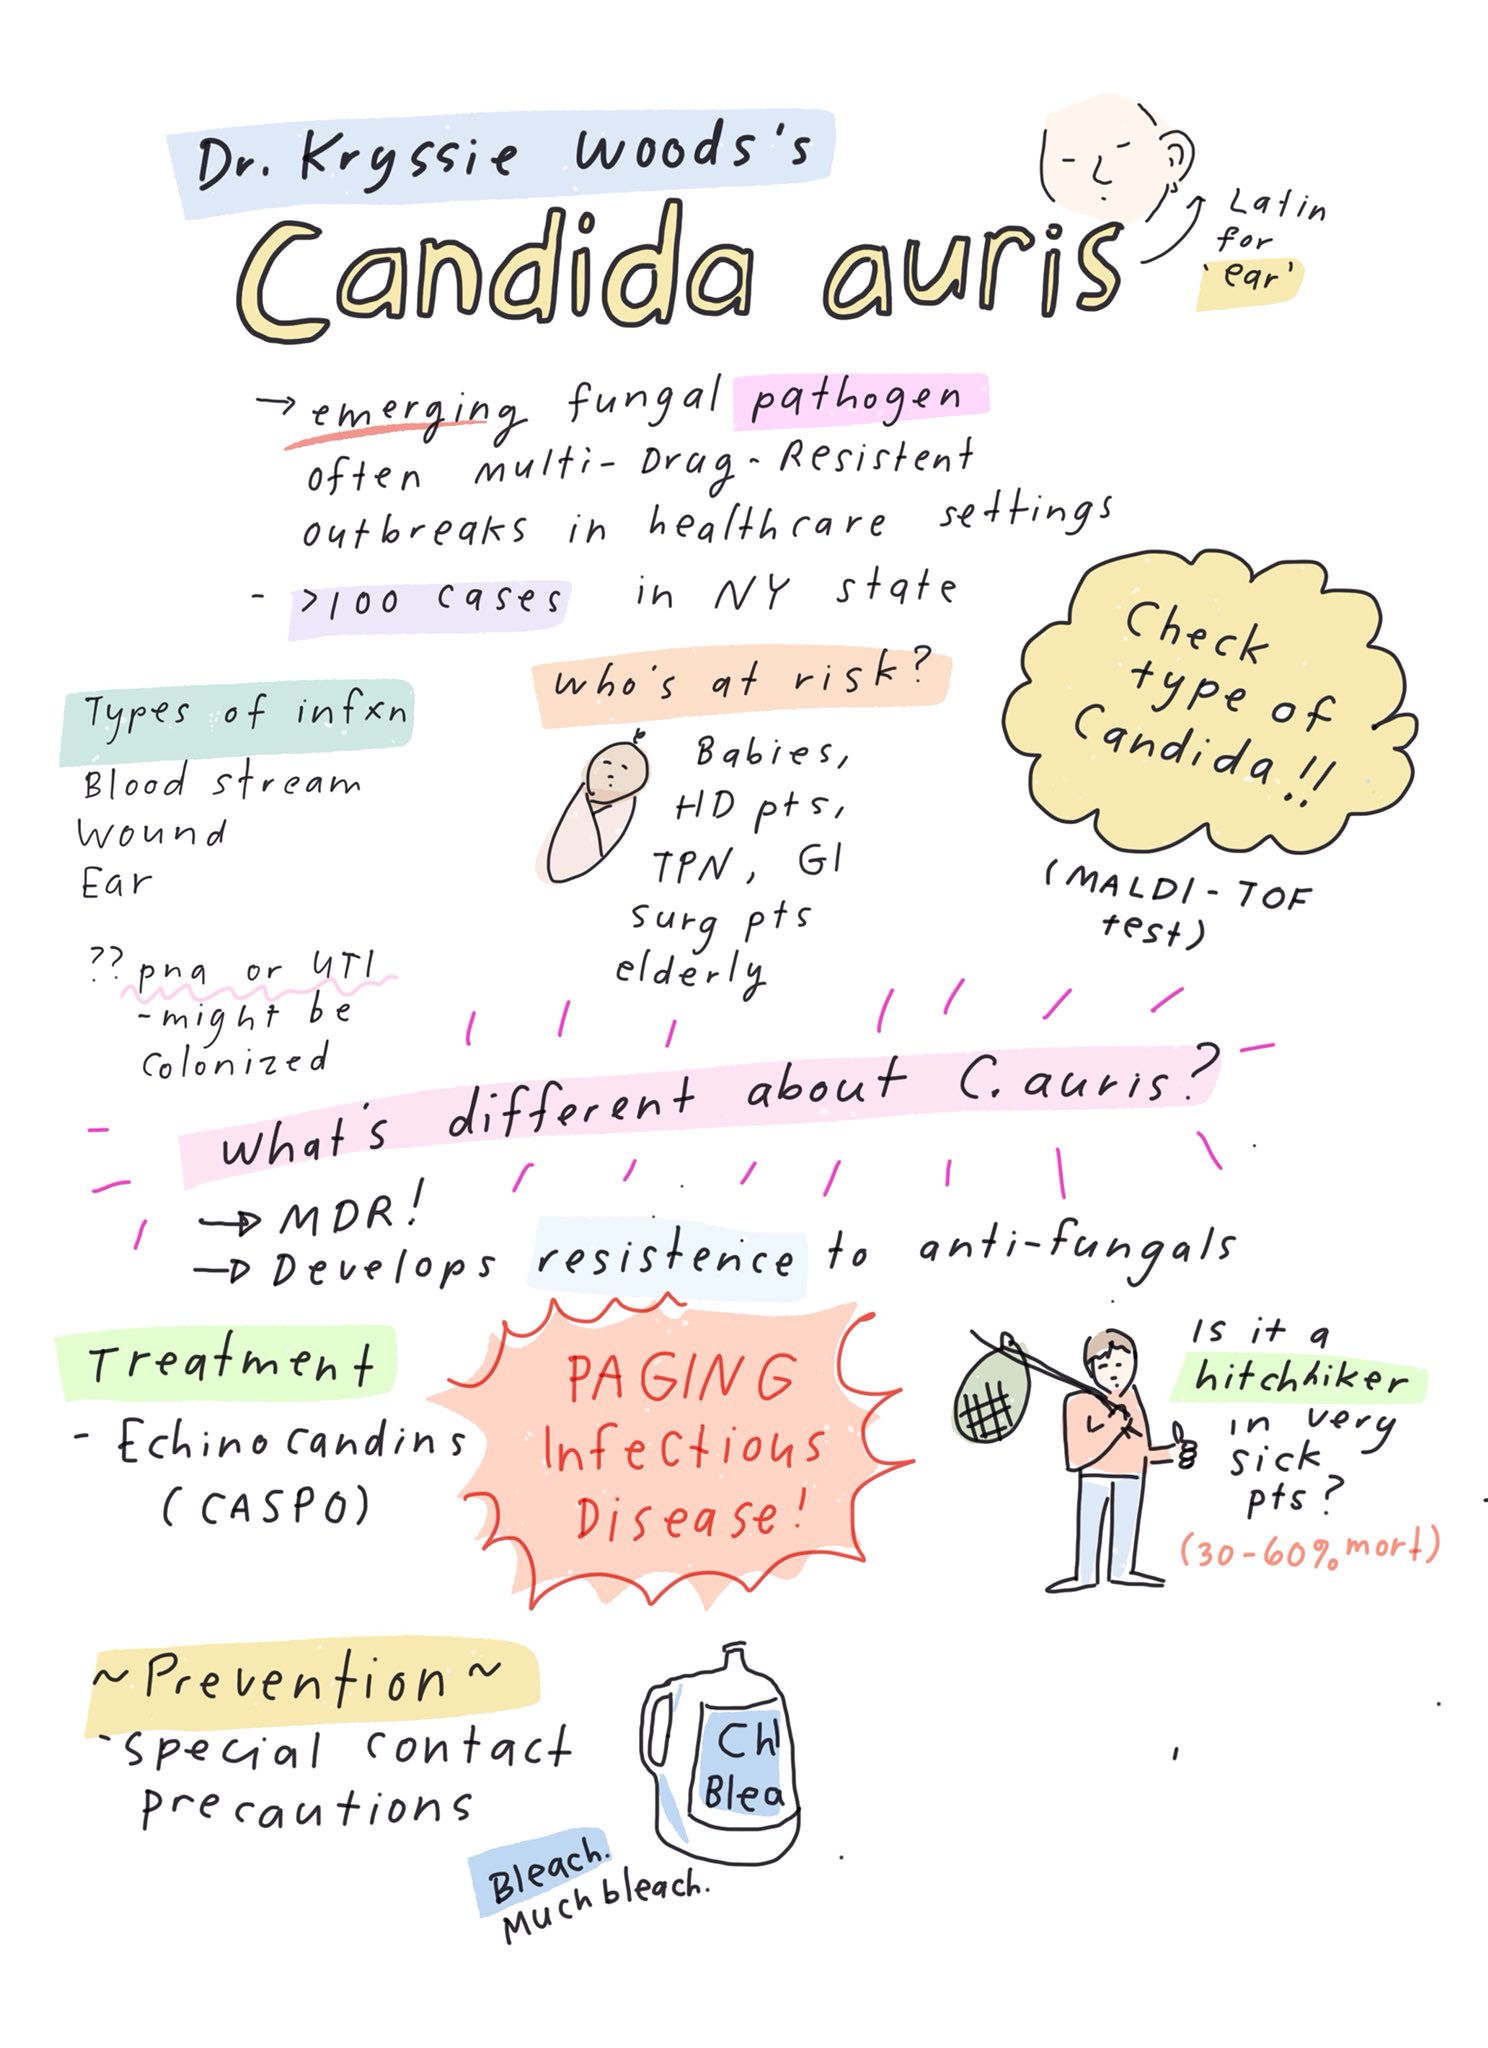 Dr. Kryssie Woods's
Candida auris
Latin
for
'ear'
→ emerging fungal pathogen
often Multi-Drug-Resistent
outbreaks in healthcare settings
- >100 cases in NY state
Check
type of
Candida!!
(MALDI-TOF
test)
Types of infxn
Blood stream
Wound
Ear
?? pna or UTI
-might be
colonized
Who's at risk?
Babies,
HD pts,
TPN, GI
surg pts
elderly
What's different about C. auris?
→ MDR!
→ Develops resistence to anti-fungals
Treatment
- Echinocandins
(CASPO)
PAGING
Infectious
Disease!
Is it a
hitchhiker
in very
sick
pts?
(30-60% mort)
~Prevention~
- special contact
precautions
Ch
Blea
Bleach.
Much bleach.